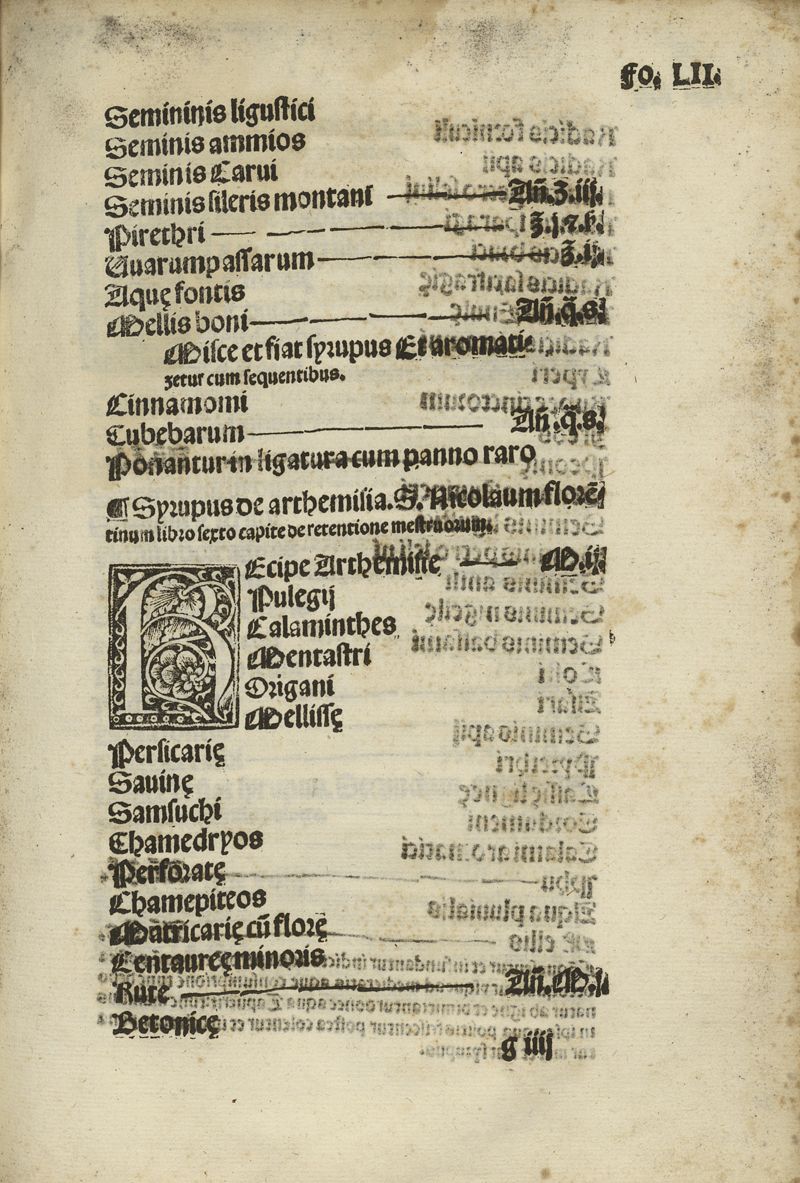 fo. LII.
Semininis ligustici
Seminis ammios
Seminis Carui
Seminis sileris montani Añ.ʒ.iij.
Pirethri ʒ.j.⁊.ß.
Uuarumpassarum ℥.ij.
Aquę fontis
Mellis boni Añ.q̃.s.
Misce et fiat syrupus Et aromati
zetur cum sequentibus.
Cinnamomi
Cubebarum Añ.q̃.s.
Ponantur in ligatura cum panno raro
¶ Syrupus de arthemisia. S. Nicolaum florẽ
tinum libro sexto capite de retentione mestruorum.
REcipe Arthemisie M.iij
Pulegij
Calaminthes
Mentastri
Origani
Mellissę
Persicarię
Savinę
Samsuchi
Chamedryos
Perforatę
Chamepiteos
Matricarię cũ florę
Centaureę minoris
Rute Añ.M.j.
Betonicę
g iiij